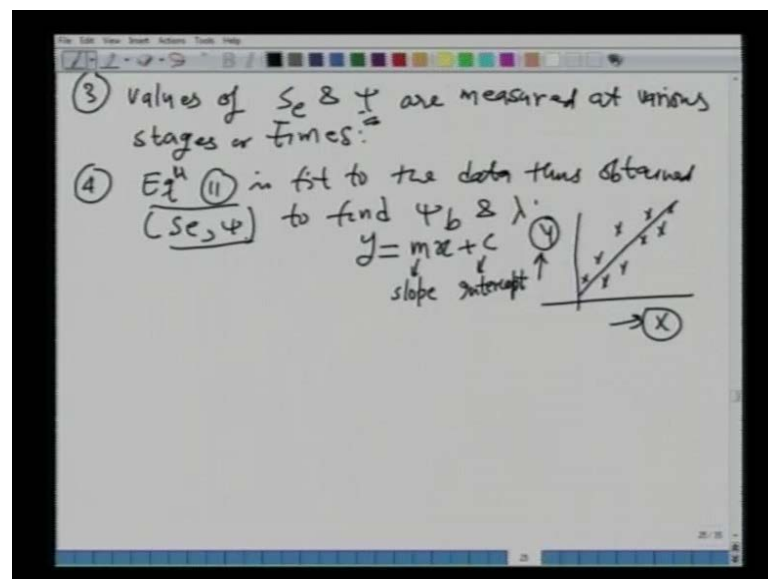 File Edit View Insert Actions Tools Help
③ values of Se & ψ are measured at various
stages or times.
④ Eqⁿ ⑪ is fit to the data thus obtained
(Se, ψ) to find ψb & λ.
y = mx + c
slope intercept
Y
X
25/35
25